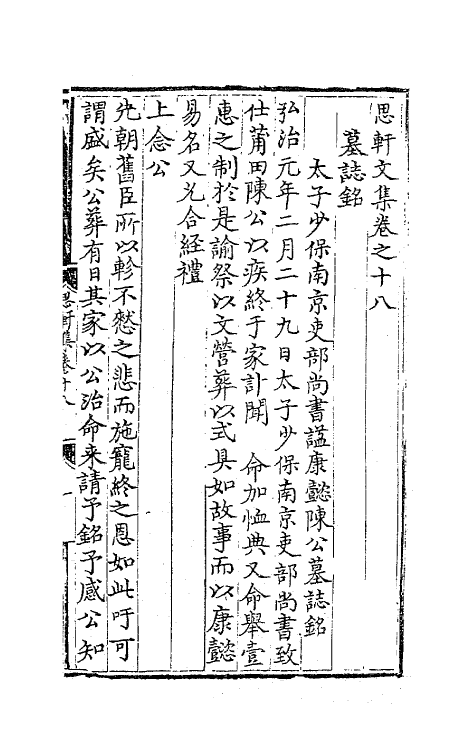 思軒文集卷之十八
墓誌銘
太子少保南京吏部尚書諡康懿陳公墓誌銘
弘治元年二月二十九日太子少保南京吏部尚書致
仕莆田陳公以疾終于家訃聞 命加恤典又命舉壹
惠之制於是諭祭以文營葬以式具如故事而以康懿
易名又允合経禮
上念公
先朝舊臣所以軫不憗之悲而施寵終之恩如此吁可
謂盛矣公葬有日其家以公治命来請予銘予感公知
思軒集卷十八 一